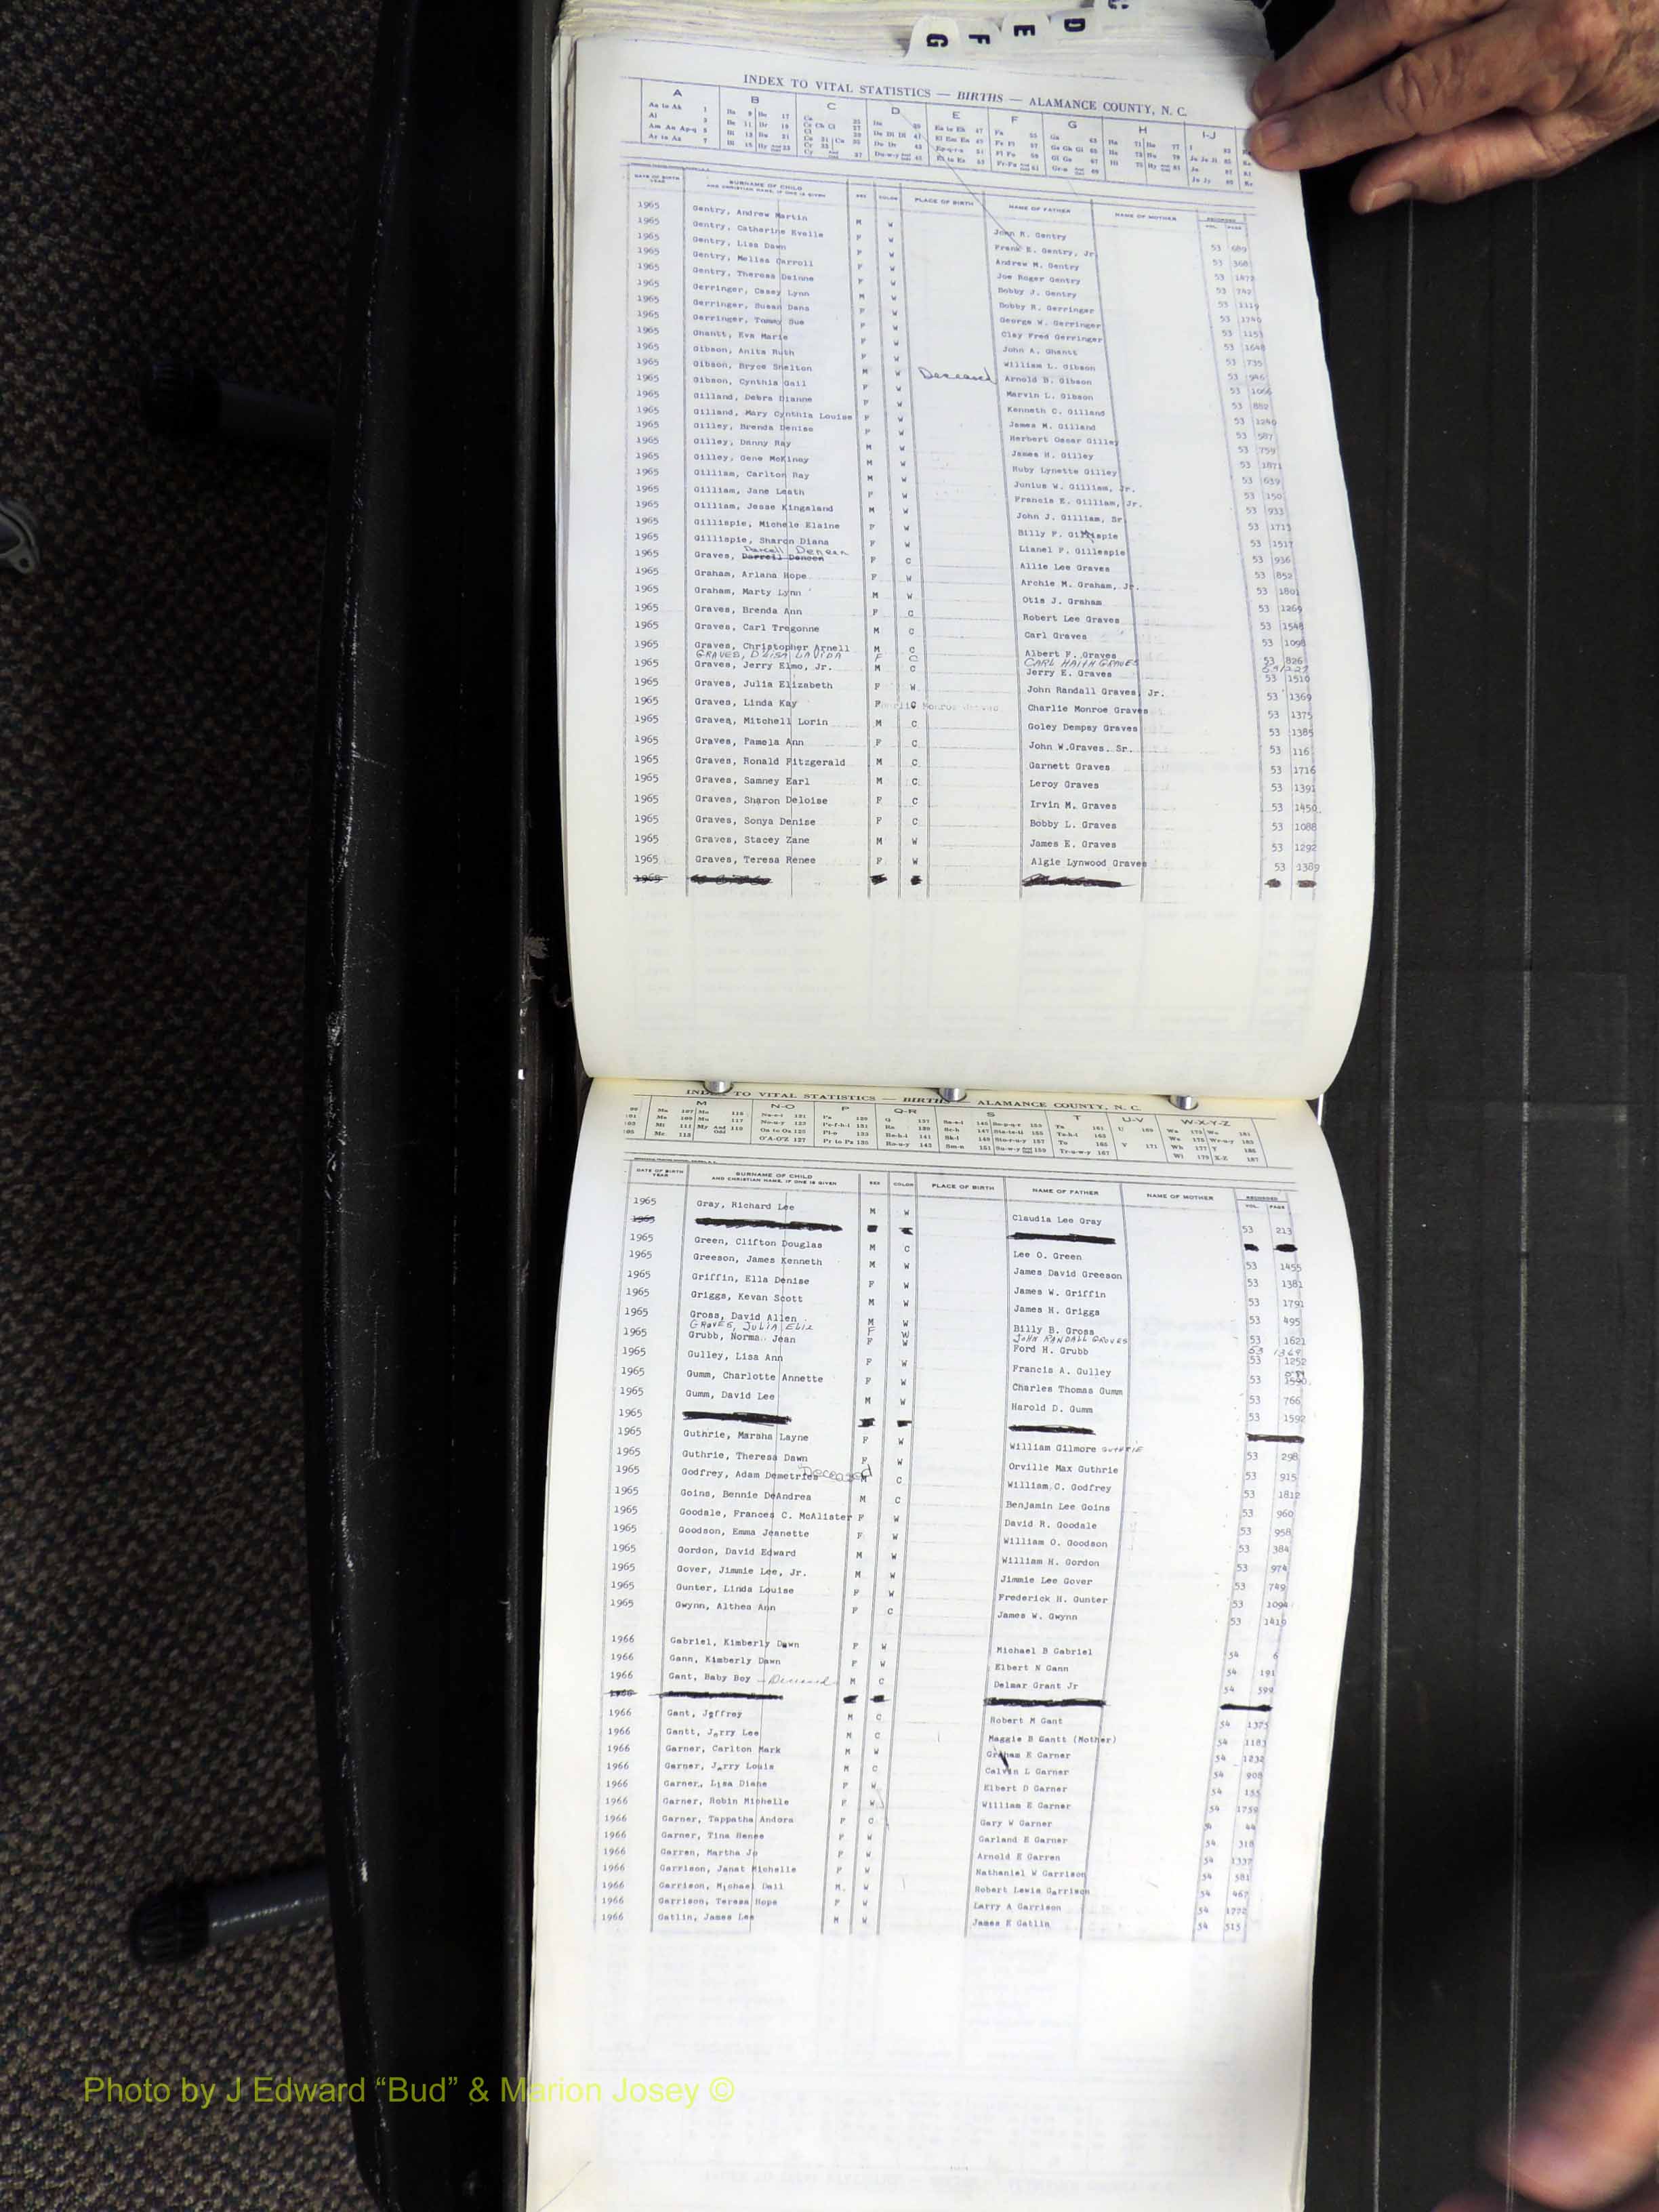 G F E D C
INDEX TO VITAL STATISTICS — BIRTHS — ALAMANCE COUNTY, N. C.
A B C D E F G H I-J
DATE OF BIRTH YEAR SURNAME OF CHILD AND CHRISTIAN NAME, IF ONE IS GIVEN SEX COLOR PLACE OF BIRTH NAME OF FATHER NAME OF MOTHER RECORDED VOL. PAGE
1965 Gentry, Andrew Martin M W John R. Gentry 53 689
1965 Gentry, Catherine Evelle F W Frank E. Gentry, Jr 53 368
1965 Gentry, Lisa Dawn F W Andrew M. Gentry 53
1965 Gentry, Melisa Carroll F W Joe Roger Gentry 53 742
1965 Gentry, Theresa Dainne F W Bobby J. Gentry 53 1119
1965 Gerringer, Casey Lynn M W Bobby R. Gerringer 53 1740
1965 Gerringer, Susan Dana F W George W. Gerringer 53 1153
1965 Gerringer, Tommy Sue F W Clay Fred Gerringer 53 1648
1965 Ghantt, Eva Marie F W John A. Ghantt 53 735
1965 Gibson, Anita Ruth F W William L. Gibson 53 946
1965 Gibson, Bryce Shelton M W Deceased Arnold B. Gibson 53 1066
1965 Gibson, Cynthia Gail F W Marvin L. Gibson 53 882
1965 Gilland, Debra Dianne F W Kenneth C. Gilland 53 1240
1965 Gilland, Mary Cynthia Louise F W James M. Gilland 53 587
1965 Gilley, Brenda Denise F W Herbert Oscar Gilley 53 759
1965 Gilley, Danny Ray M W James H. Gilley 53 1871
1965 Gilley, Gene McKinay M W Ruby Lynette Gilley 53 639
1965 Gilliam, Carlton Ray M W Junius W. Gilliam, Jr. 53 150
1965 Gilliam, Jane Leath F W Francis E. Gilliam, Jr. 53 933
1965 Gilliam, Jesse Kingsland M W John J. Gilliam, Sr 53 1713
1965 Gillispie, Michele Elaine F W Billy F. Gillispie 53 1517
1965 Gillispie, Sharon Diana F W Lianel P. Gillespie 53 936
Darcell Deneen
1965 Graves, Darrell Deneen F C Allie Lee Graves 53 852
1965 Graham, Ariana Hope F W Archie M. Graham, Jr. 53 1801
1965 Graham, Marty Lynn M W Otis J. Graham 53 1269
1965 Graves, Brenda Ann F C Robert Lee Graves 53 1548
1965 Graves, Carl Tregonne M C Carl Graves 53 1098
1965 Graves, Christopher Arnell M C Albert F. Graves 53 826
GRAVES, DEISA LAVIDA F C CARL HAITH GRAVES 53/1227
1965 Graves, Jerry Elmo, Jr. M C Jerry E. Graves 53 1510
1965 Graves, Julia Elizabeth F W John Randall Graves, Jr. 53 1369
1965 Graves, Linda Kay F C Charlie Monroe Graves 53 1375
1965 Graves, Mitchell Lorin M C Goley Dempsy Graves 53 1385
1965 Graves, Pamela Ann F C John W.Graves. Sr. 53 116
1965 Graves, Ronald Fitzgerald M C Garnett Graves 53 1716
1965 Graves, Samney Earl M C Leroy Graves 53 1391
1965 Graves, Sharon Deloise F C Irvin M. Graves 53 1450
1965 Graves, Sonya Denise F C Bobby L. Graves 53 1088
1965 Graves, Stacey Zane M W James E. Graves 53 1292
1965 Graves, Teresa Renee F W Algie Lynwood Graves 53 1389
1965
INDEX TO VITAL STATISTICS — BIRTHS — ALAMANCE COUNTY, N. C.
M N-O P Q-R S T U-V W-X-Y-Z
DATE OF BIRTH YEAR SURNAME OF CHILD AND CHRISTIAN NAME, IF ONE IS GIVEN SEX COLOR PLACE OF BIRTH NAME OF FATHER NAME OF MOTHER RECORDED VOL. PAGE
1965 Gray, Richard Lee M W Claudia Lee Gray 53 213
1965
1965 Green, Clifton Douglas M C Lee O. Green 53 1455
1965 Greeson, James Kenneth M W James David Greeson 53 1381
1965 Griffin, Ella Denise F W James W. Griffin 53 1791
1965 Griggs, Kevan Scott M W James H. Griggs 53 495
1965 Gross, David Allen M W Billy B. Gross 53 1621
GRAVES, JULIA ELIZ F W JOHN RANDALL GRAVES 53 1369
1965 Grubb, Norma Jean F W Ford H. Grubb 53 1252
1965 Gulley, Lisa Ann F W Francis A. Gulley 53 1590
1965 Gumm, Charlotte Annette F W Charles Thomas Gumm 53 766
1965 Gumm, David Lee M W Harold D. Gumm 53 1592
1965
Guthrie, Marsha Layne F W William Gilmore GUTHRIE 53 298
1965 Guthrie, Theresa Dawn F W Orville Max Guthrie 53 915
1965 Godfrey, Adam Demetries Deceased M C William.C. Godfrey 53 1812
1965 Goins, Bennie DeAndrea M C Benjamin Lee Goins 53 960
1965 Goodale, Frances C. McAlister F W David R. Goodale 53 958
1965 Goodson, Emma Jeanette F W William O. Goodson 53 384
1965 Gordon, David Edward M W William H. Gordon 53 974
1965 Gover, Jimmie Lee, Jr. M W Jimmie Lee Gover 53 749
1965 Gunter, Linda Louise F W Frederick H. Gunter 53 1094
1965 Gwynn, Althea Ann F C James W. Gwynn 53 1419
1966 Gabriel, Kimberly Dawn F W Michael B Gabriel 54 6
1966 Gann, Kimberly Dawn F W Elbert N Gann 54 191
1966 Gant, Baby Boy - Deceased M C Delmar Grant Jr 54 599
1966
1966 Gant, Jeffrey M C Robert M Gant 54 1375
1966 Gantt, Jerry Lee M C Maggie B Gantt (Mother) 54 1183
1966 Garner, Carlton Mark M W Graham E Garner 54 1232
1966 Garner, Jarry Louis M C Calvin L Garner 54 908
1966 Garner, Lisa Diane F W Elbert D Garner 54 155
1966 Garner, Robin Michelle F W William E Garner 54 1759
1966 Garner, Tappatha Andora F C Gary W Garner 54 44
1966 Garner, Tina Renee F W Garland E Garner 54 318
1966 Garren, Martha Jo F W Arnold E Garren 54 1337
1966 Garrison, Janat Michelle F W Nathaniel W Garrison 54 581
1966 Garrison, Michael Dail M. W Robert Lewis Garrison 54 467
1966 Garrison, Teresa Hope F W Larry A Garrison 54 1772
1966 Gatlin, James Lee M W James E Gatlin 54 515
Photo by J Edward “Bud” & Marion Josey ©